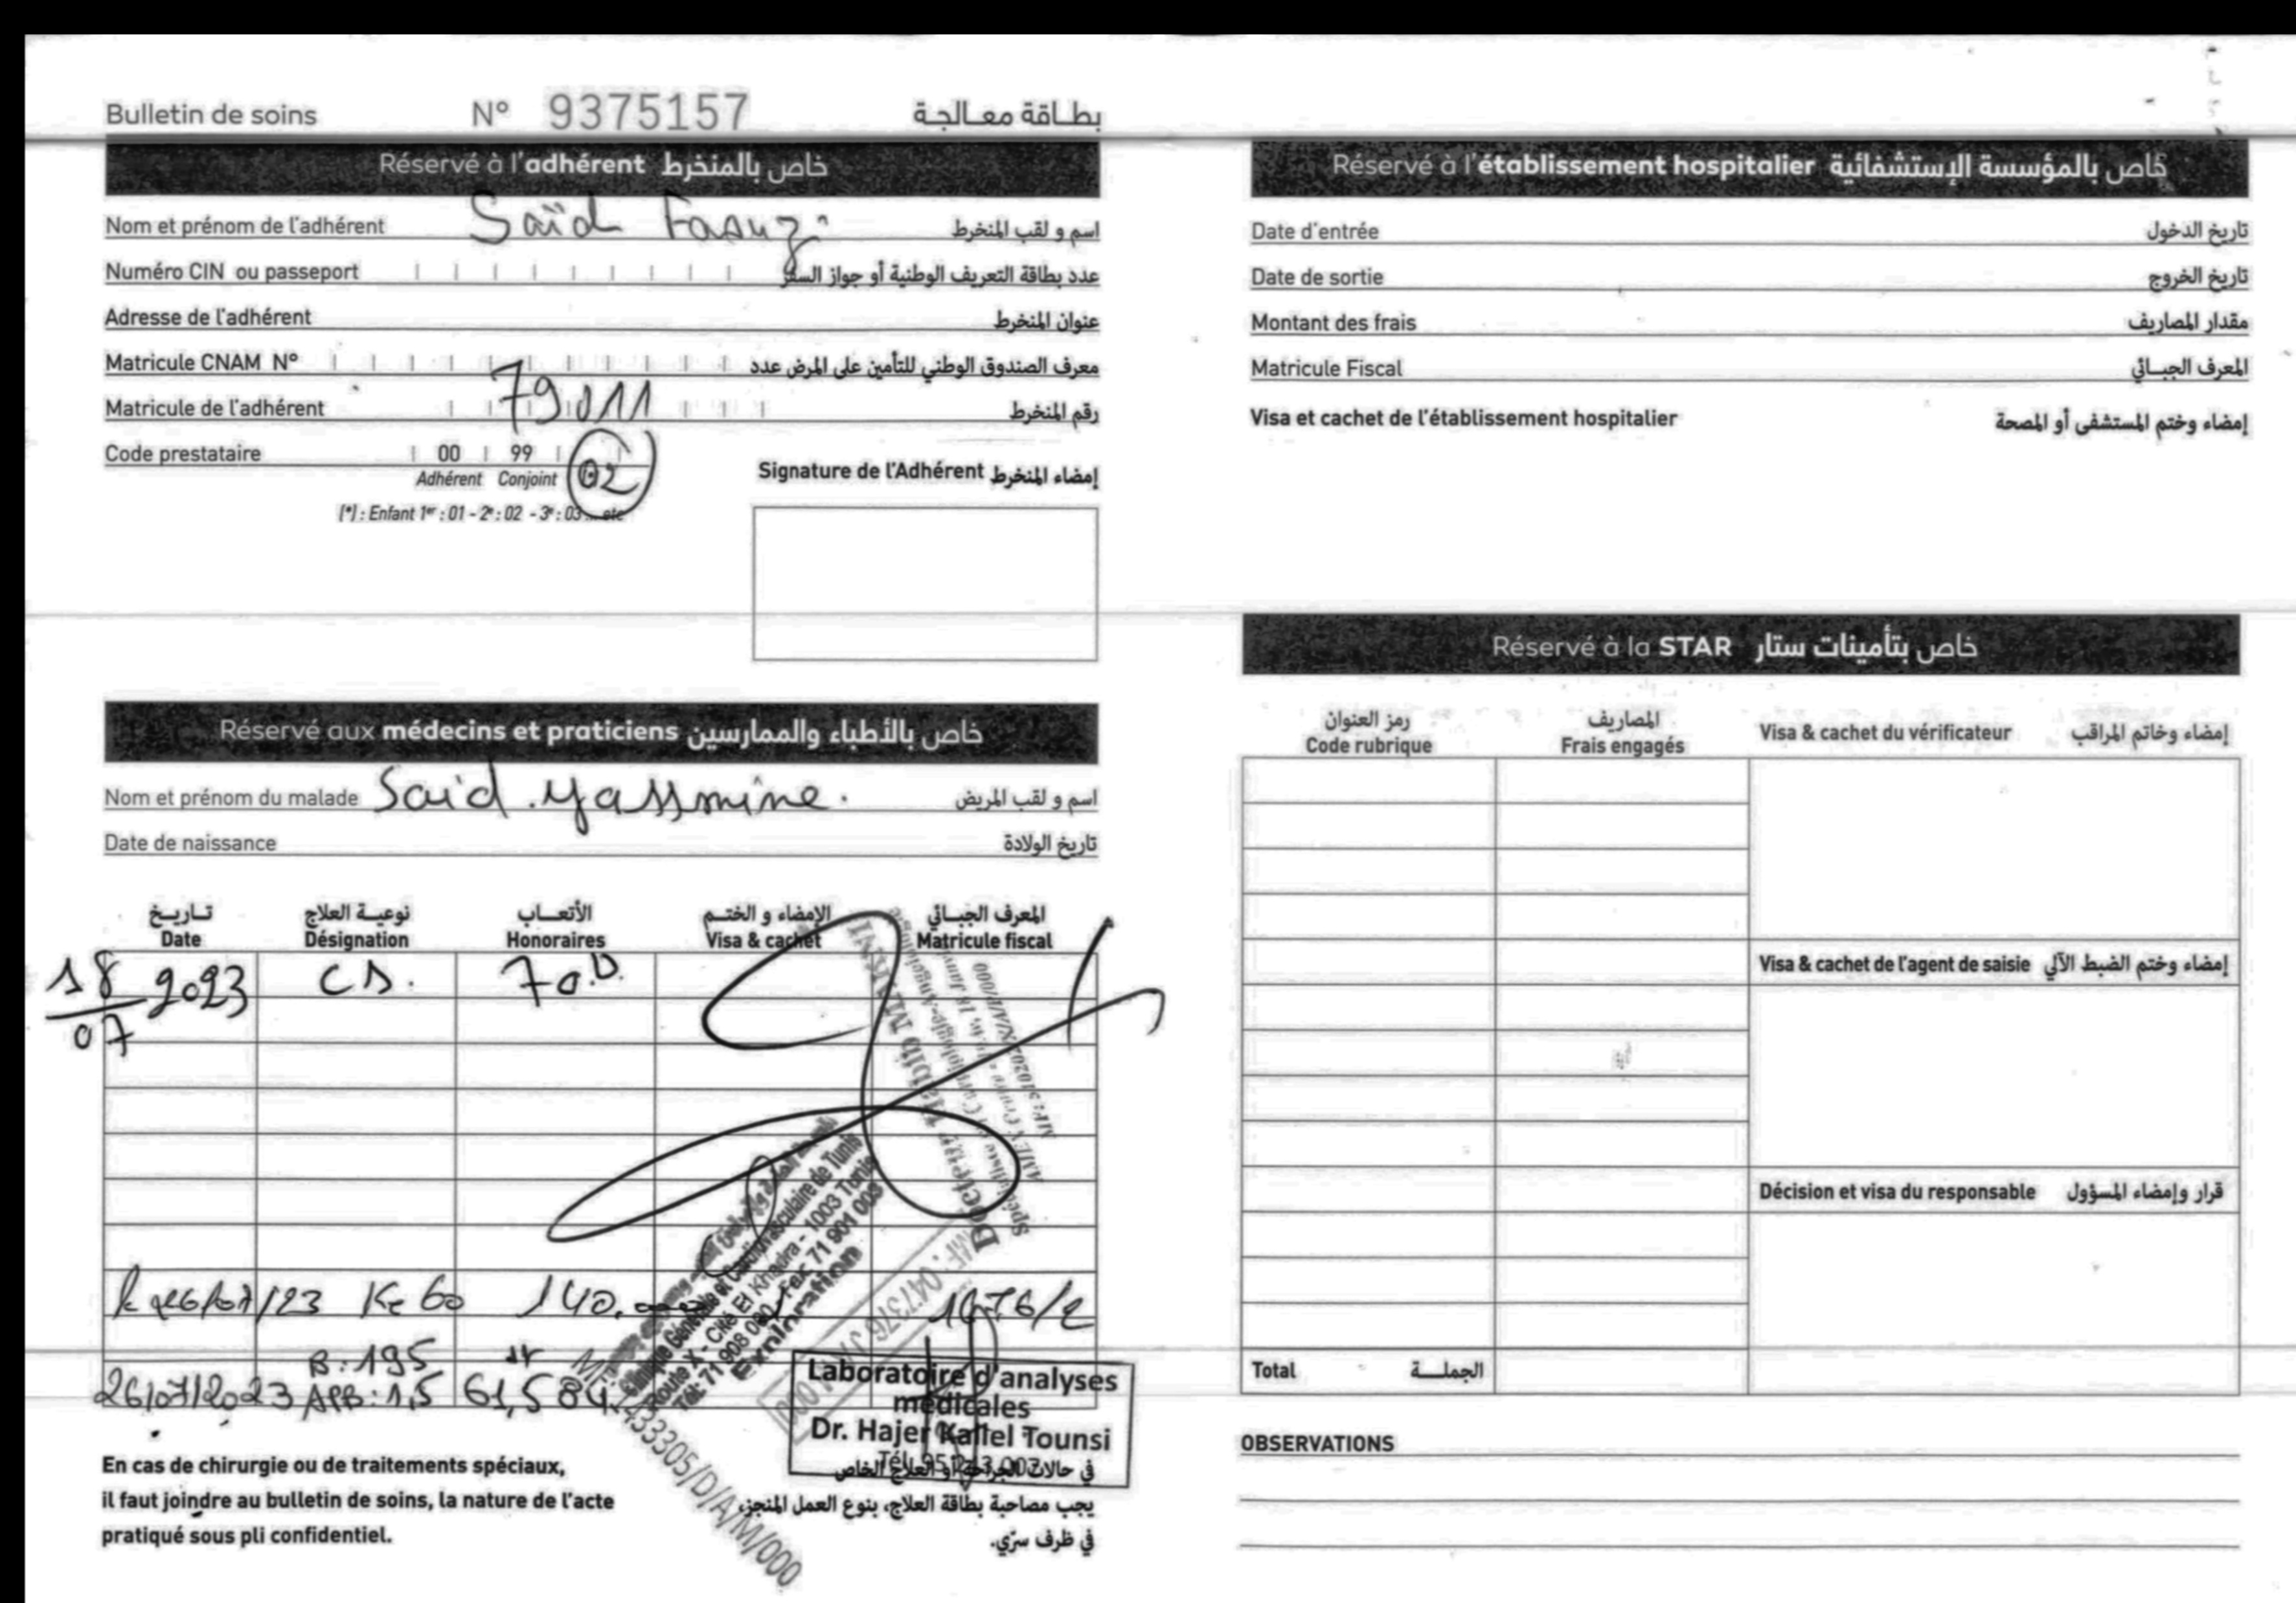 Bulletin de soins N° 9375157 بطاقة معالجة
Réservé à l'adhérent خاص بالمنخرط
Nom et prénom de l'adhérent Saïd Faouzi اسم و لقب المنخرط
Numéro CIN ou passeport عدد بطاقة التعريف الوطنية أو جواز السفر
Adresse de l'adhérent عنوان المنخرط
Matricule CNAM N° معرف الصندوق الوطني للتأمين على المرض عدد
Matricule de l'adhérent 79011 رقم المنخرط
Code prestataire 00 99 02
Adhérent Conjoint
(*) : Enfant 1er : 01 - 2e : 02 - 3e : 03 ... etc
Signature de l'Adhérent إمضاء المنخرط
Réservé aux médecins et praticiens خاص بالأطباء والممارسين
Nom et prénom du malade Said Yassmine اسم و لقب المريض
Date de naissance تاريخ الولادة
تاريخ نوعية العلاج الأتعاب الإمضاء و الختم المعرف الجبائي
Date Désignation Honoraires Visa & cachet Matricule fiscal
18/07 2023 CS. 70.D
26/07/23 140. 1076/2
B: 195
26/07/2023 APB: 1,5 61,584
Clinique Générale et Cardiovasculaire de Tunis
Route X - Cité El Khadra - 1003 Tunis
Tél: 71 908 000 / Fax: 71 901 003
Exploration
Laboratoire d'analyses
médicales
Dr. Hajer Kallel Tounsi
En cas de chirurgie ou de traitements spéciaux,
il faut joindre au bulletin de soins, la nature de l'acte
pratiqué sous pli confidentiel.
في حالات الجراحة أو العلاج الخاص
يجب مصاحبة بطاقة العلاج، بنوع العمل المنجز،
في ظرف سرّي.
Réservé à l'établissement hospitalier خاص بالمؤسسة الإستشفائية
Date d'entrée تاريخ الدخول
Date de sortie تاريخ الخروج
Montant des frais مقدار المصاريف
Matricule Fiscal المعرف الجبائي
Visa et cachet de l'établissement hospitalier إمضاء وختم المستشفى أو المصحة
Réservé à la STAR خاص بتأمينات ستار
رمز العنوان المصاريف
Code rubrique Frais engagés Visa & cachet du vérificateur إمضاء وخاتم المراقب
Visa & cachet de l'agent de saisie إمضاء وختم الضبط الآلي
Décision et visa du responsable قرار وإمضاء المسؤول
Total الجملة
OBSERVATIONS